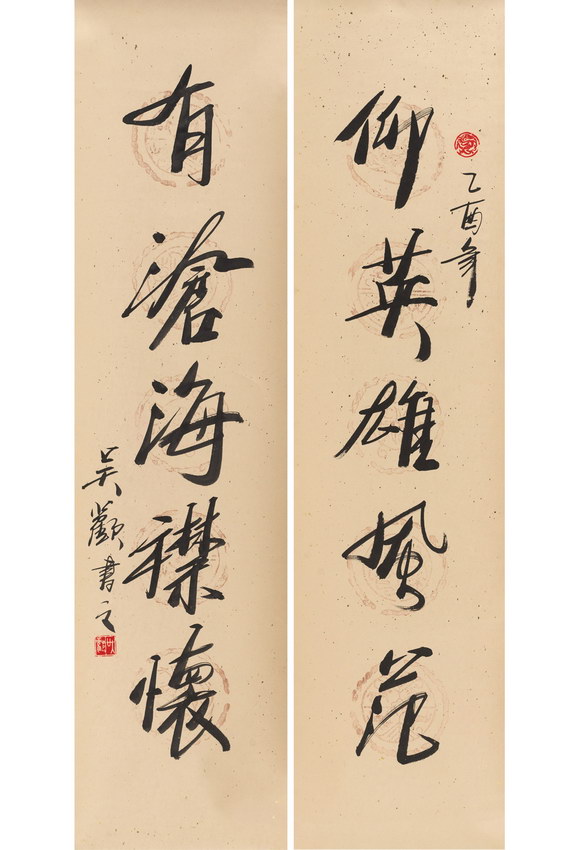 仰英雄風范
乙酉年
有滄海襟懷
吳顴書之